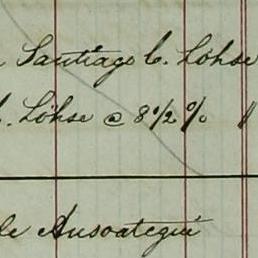 Santiago C. Löhse
. Löhse @ 8 1/2 %
de Ansoategui